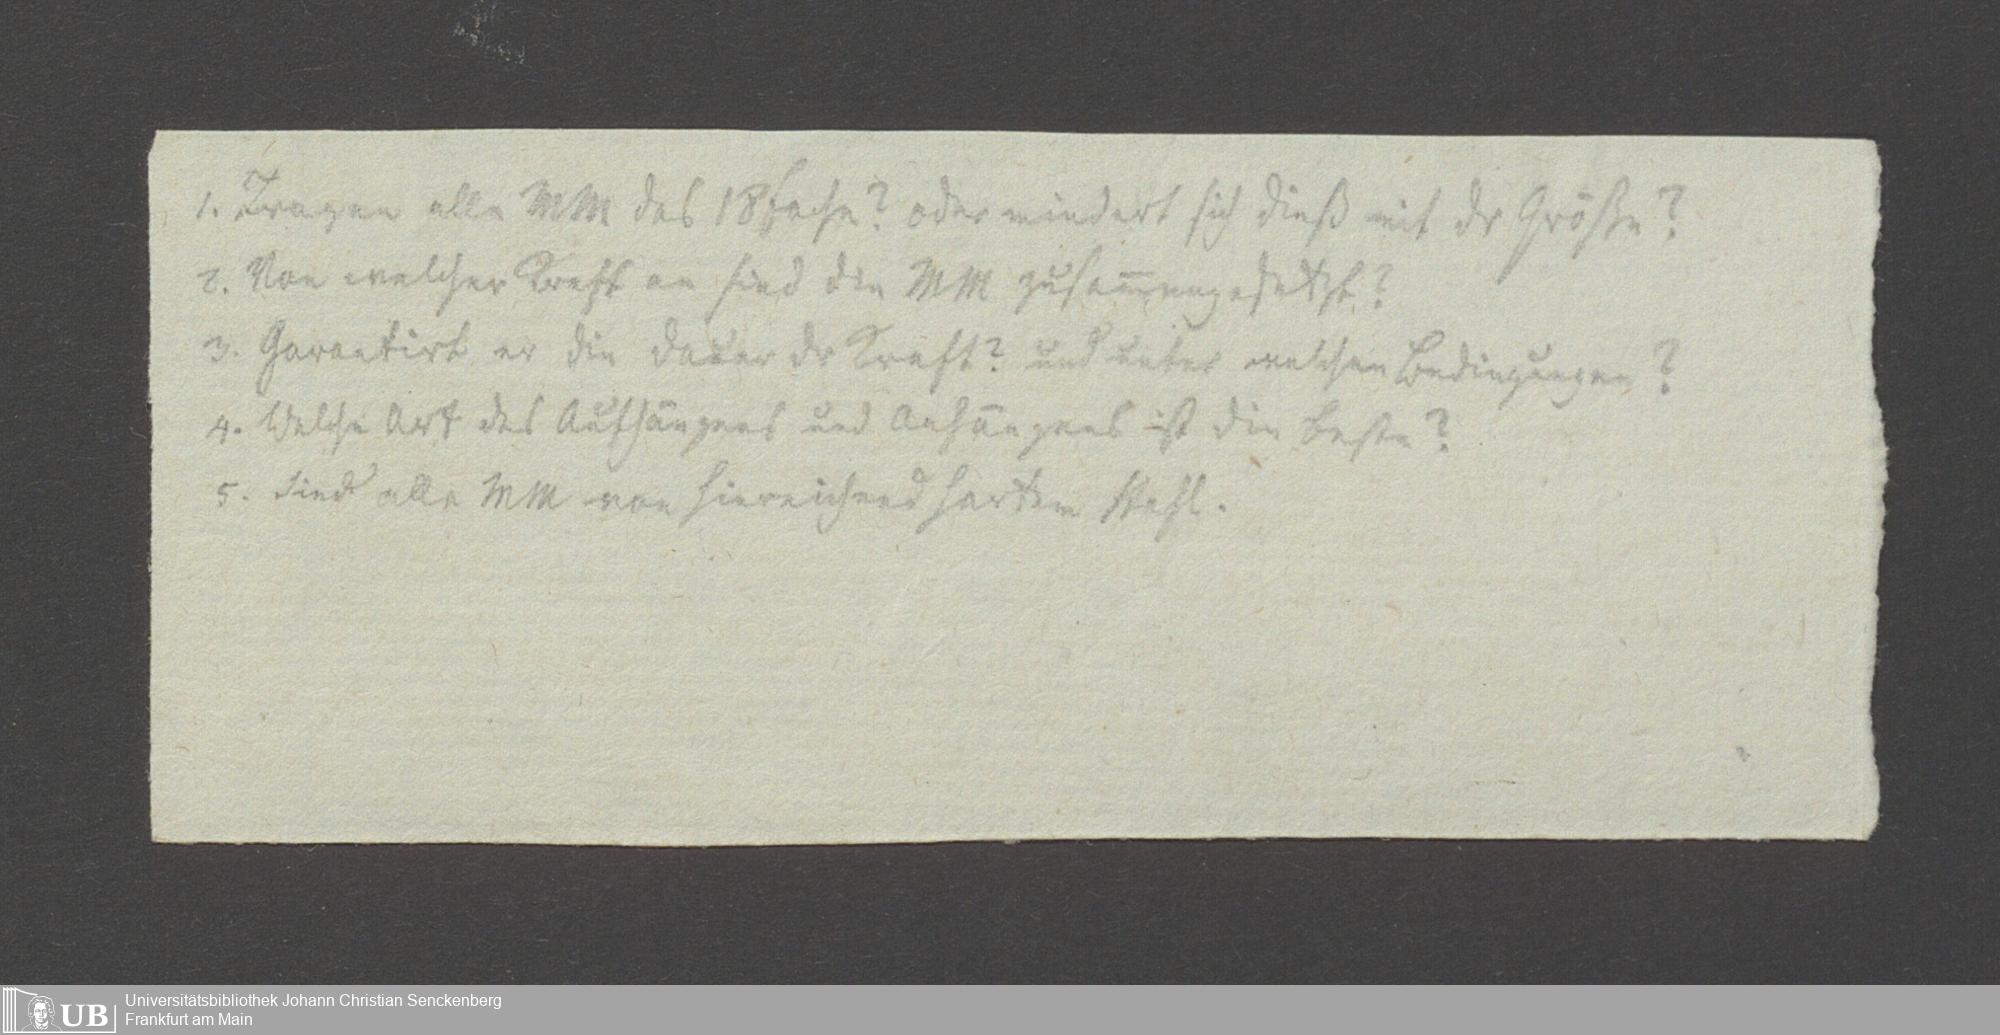 1. Tragen alle MM das 18fache? oder mindert sich dieß mit dr Größe?
2. Von welcher Kraft an sind die MM zusam̅engesetzt?
3. Garantirt er die Dauer dr Kraft? und unter welchen Bedingungen?
4. Welche Art des Aufhängens und Anhängens ist die beste?
5. Sind alle MM von hinreichend hartem Stahl.
UB
Universitätsbibliothek Johann Christian Senckenberg
Frankfurt am Main